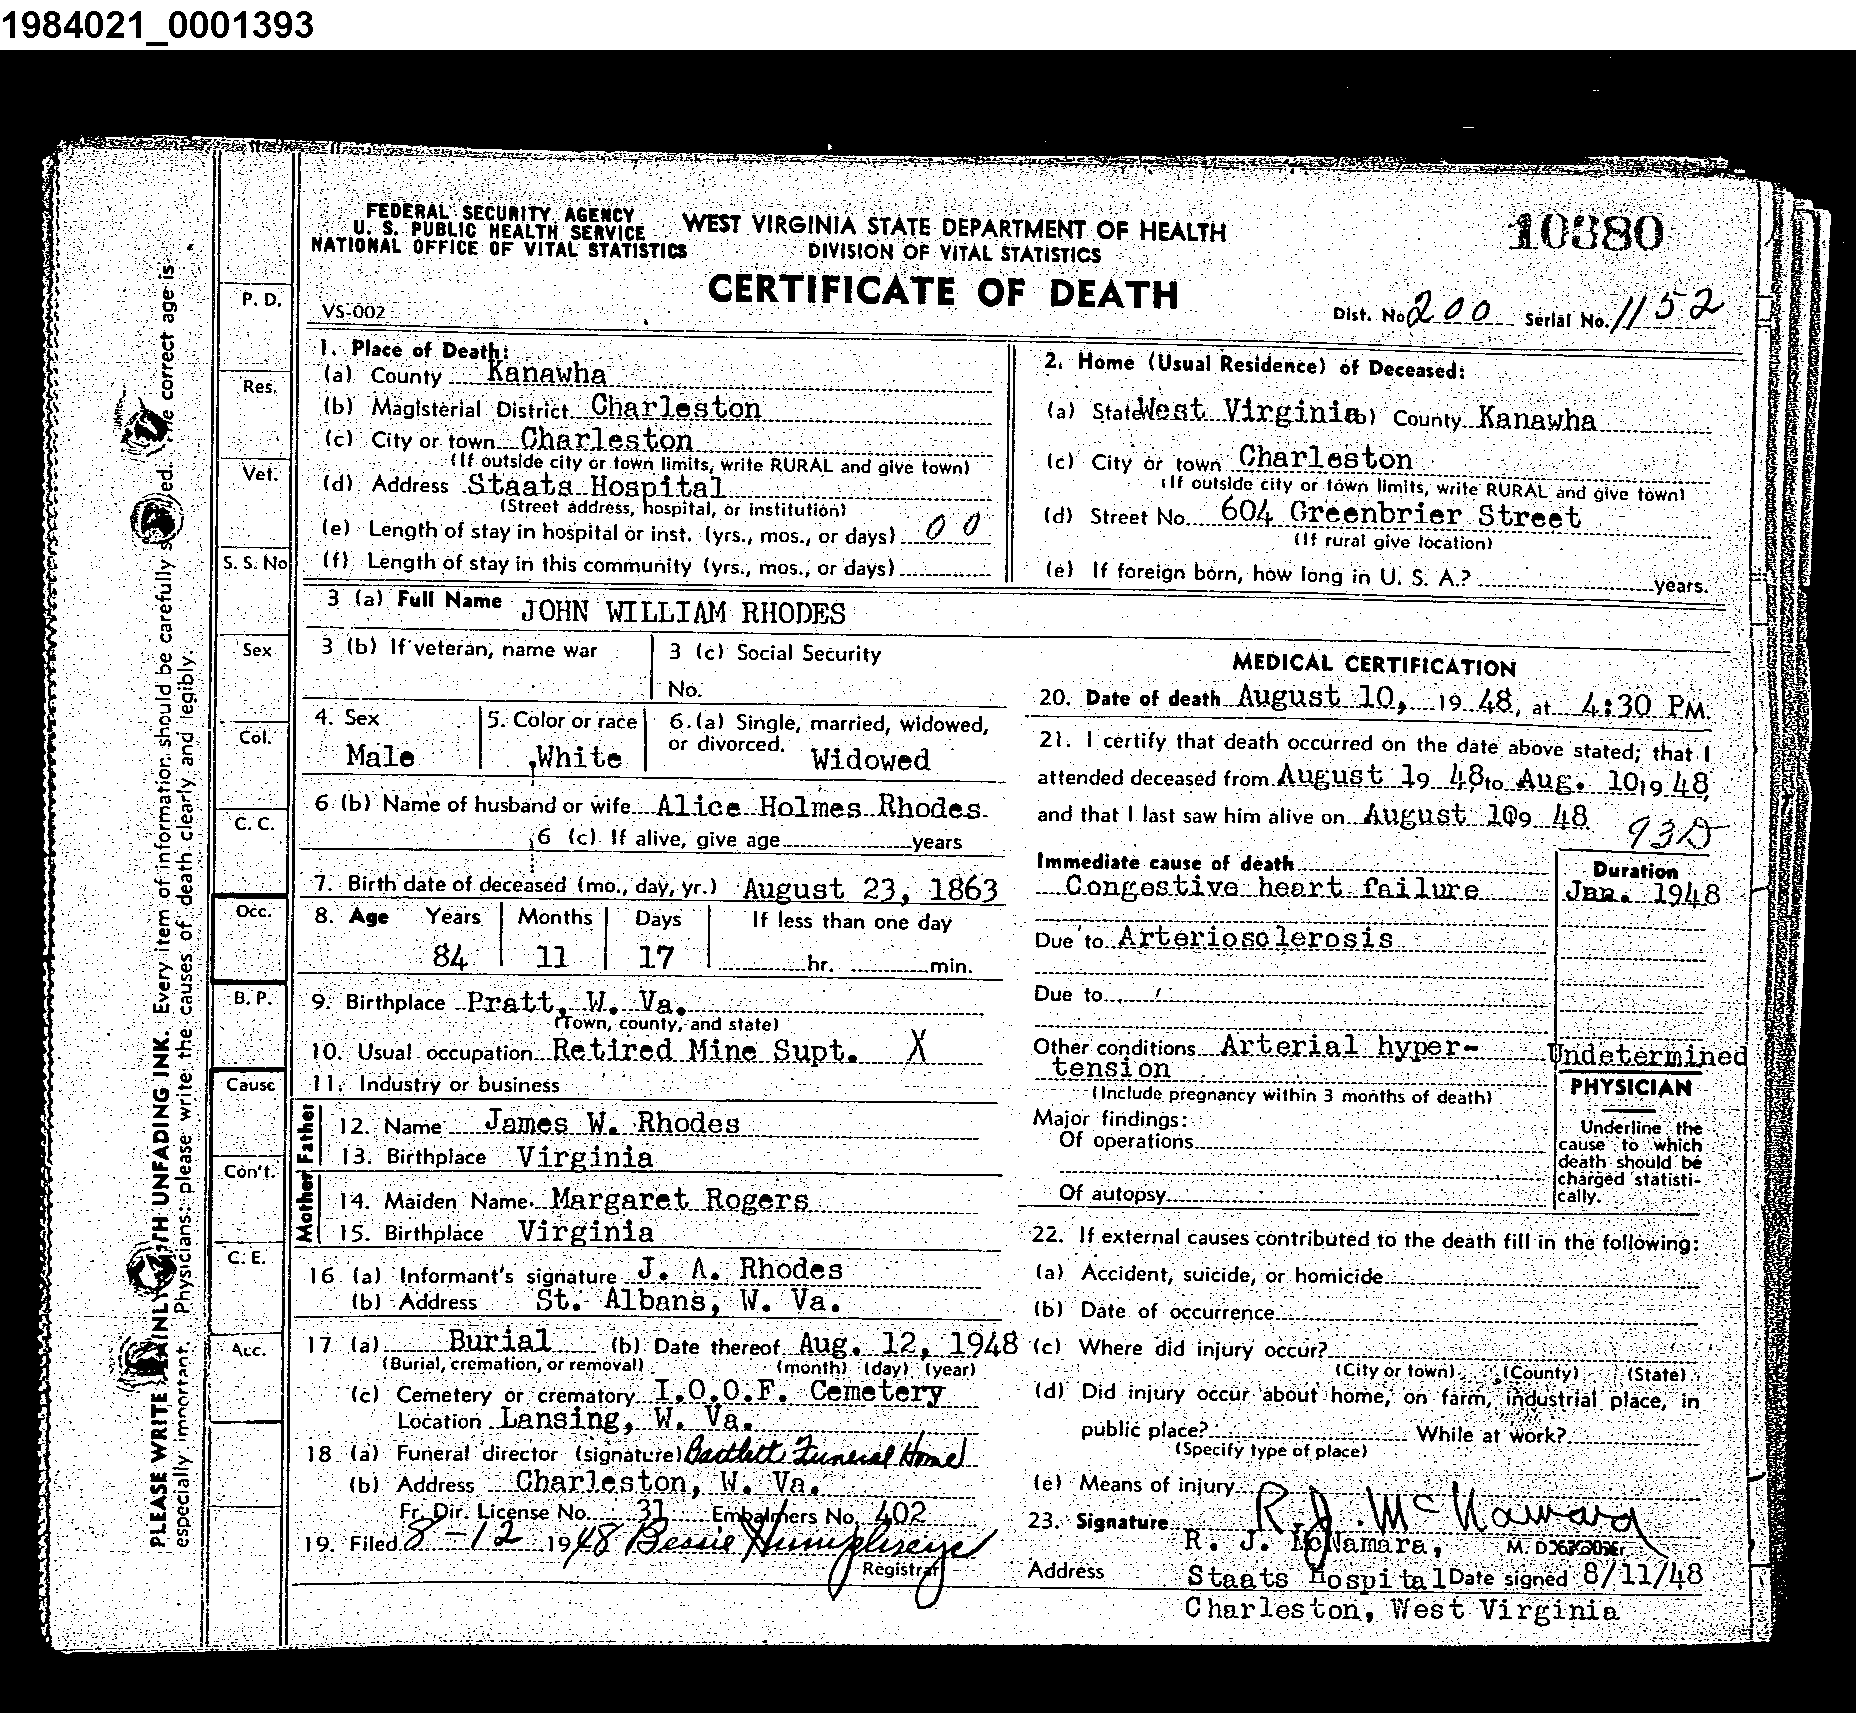 1984021_0001393
FEDERAL SECURITY AGENCY
U. S. PUBLIC HEALTH SERVICE
NATIONAL OFFICE OF VITAL STATISTICS
WEST VIRGINIA STATE DEPARTMENT OF HEALTH
DIVISION OF VITAL STATISTICS
CERTIFICATE OF DEATH
10380
VS-002
Dist. No. 200 Serial No. 1152
1. Place of Death:
(a) County Kanawha
(b) Magisterial District Charleston
(c) City or town Charleston
(If outside city or town limits, write RURAL and give town)
(d) Address Staats Hospital
(Street address, hospital, or institution)
(e) Length of stay in hospital or inst. (yrs., mos., or days) 00
(f) Length of stay in this community (yrs., mos., or days)
2. Home (Usual Residence) of Deceased:
(a) State West Virginia (b) County Kanawha
(c) City or town Charleston
(If outside city or town limits, write RURAL and give town)
(d) Street No. 604 Greenbrier Street
(If rural give location)
(e) If foreign born, how long in U. S. A.? years.
3 (a) Full Name JOHN WILLIAM RHODES
3 (b) If veteran, name war
3 (c) Social Security
No.
4. Sex
Male
5. Color or race
White
6.(a) Single, married, widowed,
or divorced. Widowed
6 (b) Name of husband or wife Alice Holmes Rhodes
6 (c) If alive, give age years
7. Birth date of deceased (mo., day, yr.) August 23, 1863
8. Age Years Months Days If less than one day
84 11 17 hr. min.
9. Birthplace Pratt, W. Va.
(Town, county, and state)
10. Usual occupation Retired Mine Supt. X
11. Industry or business
Father
12. Name James W. Rhodes
13. Birthplace Virginia
Mother
14. Maiden Name Margaret Rogers
15. Birthplace Virginia
16 (a) Informant's signature J. A. Rhodes
(b) Address St. Albans, W. Va.
17 (a) Burial (b) Date thereof Aug. 12, 1948
(Burial, cremation, or removal) (month) (day) (year)
(c) Cemetery or crematory I.O.O.F. Cemetery
Location Lansing, W. Va.
18 (a) Funeral director (signature) Bartlett Funeral Home
(b) Address Charleston, W. Va.
Fr. Dir. License No. 31 Embalmers No. 402
19. Filed 8-12 1948 Bessie Humphreys
Registrar
MEDICAL CERTIFICATION
20. Date of death August 10, 19 48, at 4:30 PM.
21. I certify that death occurred on the date above stated; that I
attended deceased from August 1 19 48 to Aug. 10 19 48,
and that I last saw him alive on August 10 19 48
93D
Immediate cause of death
Congestive heart failure
Duration
Jan. 1948
Due to Arteriosclerosis
Due to
Other conditions Arterial hyper-
tension
Undetermined
(Include pregnancy within 3 months of death)
Major findings:
Of operations
Of autopsy
PHYSICIAN
Underline the
cause to which
death should be
charged statisti-
cally.
22. If external causes contributed to the death fill in the following:
(a) Accident, suicide, or homicide
(b) Date of occurrence
(c) Where did injury occur?
(City or town) (County) (State)
(d) Did injury occur about home, on farm, industrial place, in
public place? While at work?
(Specify type of place)
(e) Means of injury
23. Signature R J. McNamara
R. J. McNamara, M. D.
Address Staats Hospital Date signed 8/11/48
Charleston, West Virginia
P. D.
Res.
Vet.
S. S. No
Sex
Col.
C. C.
Occ.
B. P.
Cause
Con't.
C. E.
Acc.
PLEASE WRITE PLAINLY WITH UNFADING INK. Every item of information should be carefully The correct age is
especially important. Physicians: please write the causes of death clearly and legibly.